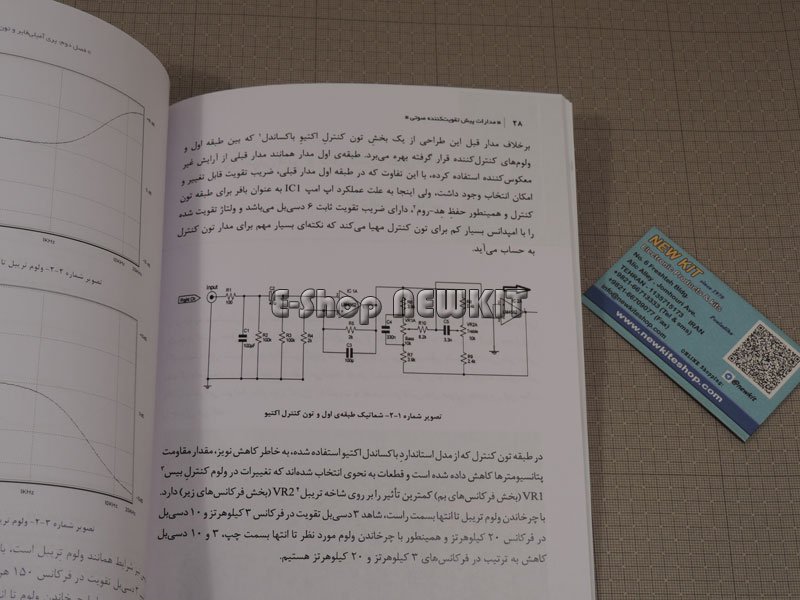 فصل دوم: پری آمپلی‌فایر و تون
1KHz
10KHz
20KHz
تصویر شماره ۲-۲- ولوم تریبل تا
1KHz
10KHz
20KHz
تصویر شماره ۳-۲- ولوم تریبل
شرایط همانند ولوم تریبل است، با
دسی‌بل تقویت در فرکانس ۱۵۰ هر
۲۸ | «مدارات پیش تقویت‌کننده صوتی»
برخلاف مدار قبل این طراحی از یک بخشِ تون کنترلِ اکتیو باکساندل۱ که بین طبقه اول و
ولوم‌های کنترل‌کننده قرار گرفته بهره می‌برد. طبقه‌ی اول مدار همانند مدار قبلی از آرایش غیر
معکوس‌کننده استفاده کرده، با این تفاوت که در طبقه اول مدار قبلی، ضریب تقویت قابل تغییر و
امکان انتخاب وجود داشت، ولی اینجا به علت عملکرد اپ امپ IC1 به عنوان بافر برای طبقه تون
کنترل و همینطور حفظِ هِد-روم۲، دارای ضریب تقویت ثابت ۶ دسی‌بل می‌باشد و ولتاژ تقویت شده
را با امپدانس بسیار کم برای تون کنترل مهیا می‌کند که نکته‌ای بسیار مهم برای مدار تون کنترل
به حساب می‌آید.
Right Ch
Input
R1
100
C1
100pF
R2
100k
R3
100k
R4
2k
IC 1A
R5
2k
C3
100p
C4
330n
VR1A
Bass
10k
R7
R10
8.2k
C5
3.3n
VR2A
10k
R9
2.4k
E-Shop NEWKIT
تصویر شماره ۱-۲- شماتیک طبقه‌ی اول و تون کنترل اکتیو
در طبقه تون کنترل که از مدل استانداردِ باکساندل اکتیو استفاده شده، به خاطر کاهش نویز، مقدار مقاومت
پتانسیومترها کاهش داده شده است و قطعات به نحوی انتخاب شده‌اند که تغییرات در ولوم کنترل بیس۳
VR1 (بخش فرکانس‌های بم) کمترین تأثیر را بر روی شاخه تریبل۴ VR2 (بخش فرکانس‌های زیر) دارد.
با چرخاندن ولوم تریبل تا انتها بسمت راست، شاهد ۳ دسی‌بل تقویت در فرکانس ۳ کیلوهرتز و ۱۰ دسی‌بل
در فرکانس ۲۰ کیلوهرتز و همینطور با چرخاندن ولوم مورد نظر تا انتها بسمت چپ، ۳ و ۱۰ دسی‌بل
کاهش به ترتیب در فرکانس‌های ۳ کیلوهرتز و ۲۰ کیلوهرتز هستیم.
NEW KIT
Electronic Products & Kits
since 1979
No. 6 Ferdosi Bldg.
Alio Alley, Jomhouri Ave.
TEHRAN - 1135715173 IRAN
+982166713332 (Tel & sms)
+982166709077 (Fax)
info@newkiteshop.com
www.newkiteshop.com
ONLINE Shopping
@newkit